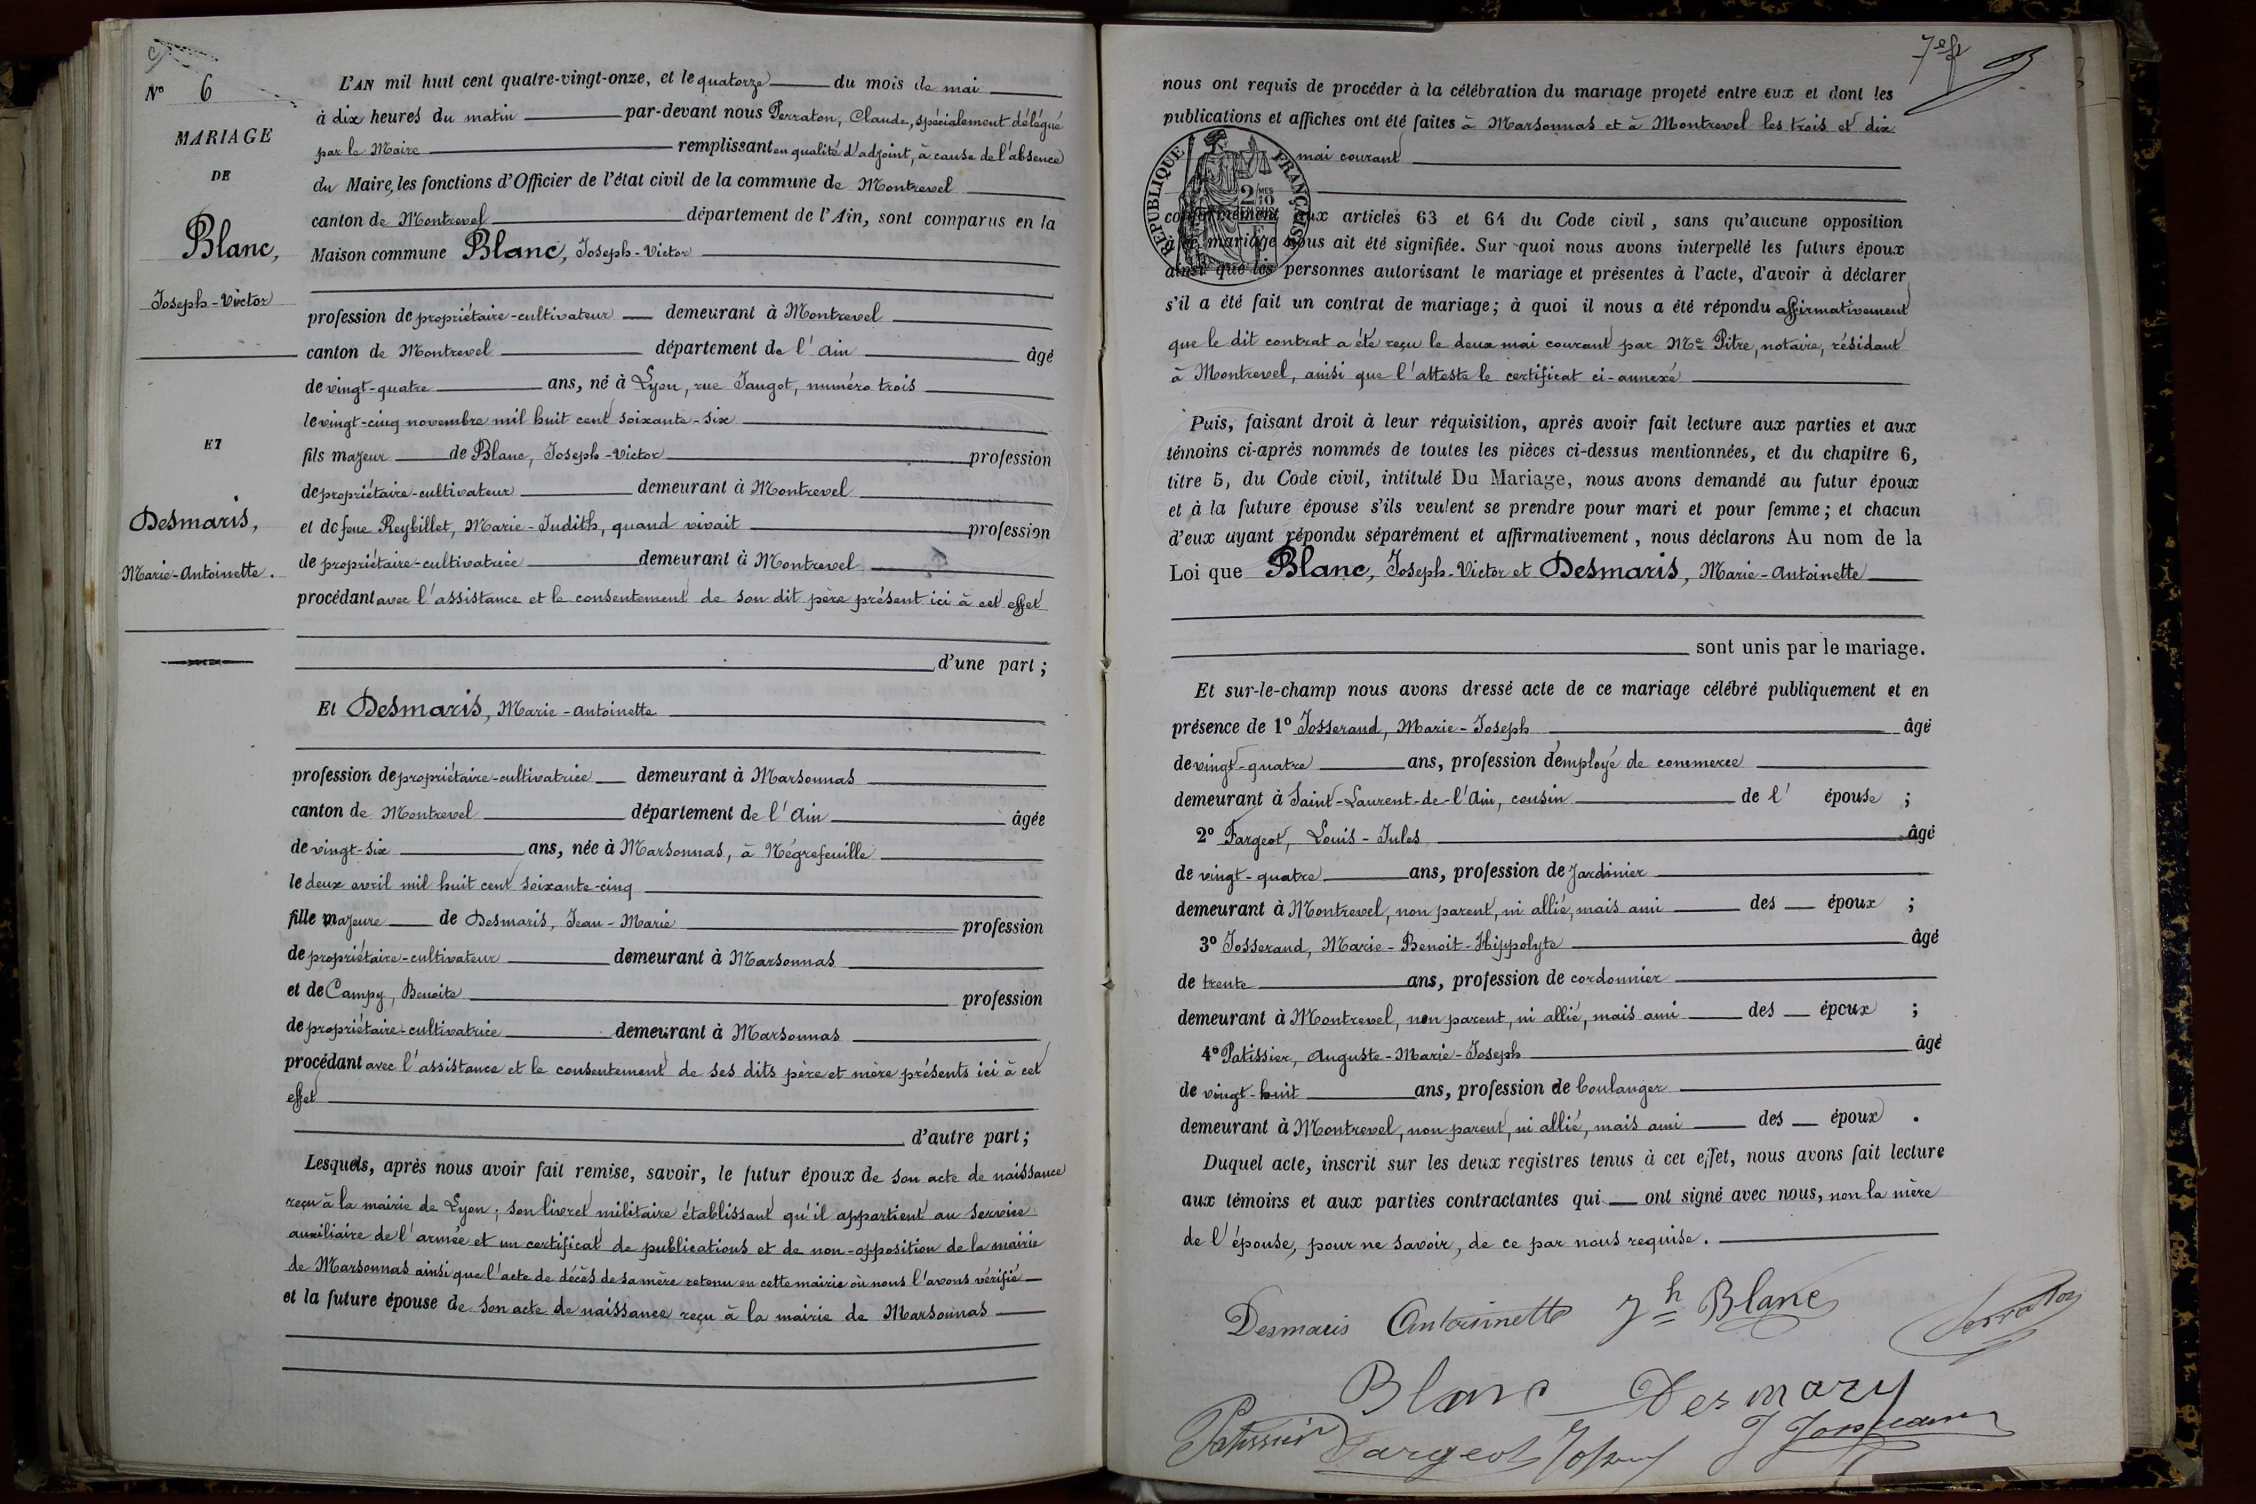 N° 6
MARIAGE
DE
Blanc,
Joseph-Victor
ET
Desmaris,
Marie-Antoinette.
L'AN mil huit cent quatre-vingt-onze, et le quatorze du mois de mai
à dix heures du matin par-devant nous Perraton, Claude, spécialement délégué
par le Maire remplissant en qualité d'adjoint, à cause de l'absence
du Maire, les fonctions d'Officier de l'état civil de la commune de Montrevel
canton de Montrevel département de l'Ain, sont comparus en la
Maison commune Blanc, Joseph-Victor
profession de propriétaire-cultivateur demeurant à Montrevel
canton de Montrevel département de l'Ain âgé
de vingt-quatre ans, né à Lyon, rue Jangot, numéro trois
le vingt-cinq novembre mil huit cent soixante-six
fils majeur de Blanc, Joseph-Victor profession
de propriétaire-cultivateur demeurant à Montrevel
et de feue Reybillet, Marie-Judith, quand vivait profession
de propriétaire-cultivatrice demeurant à Montrevel
procédant avec l'assistance et le consentement de son dit père présent ici à cet effet
d'une part;
Et Desmaris, Marie-Antoinette
profession de propriétaire-cultivatrice demeurant à Marsonnas
canton de Montrevel département de l'Ain âgée
de vingt-six ans, née à Marsonnas, à Négrefeuille
le deux avril mil huit cent soixante-cinq
fille majeure de Desmaris, Jean-Marie profession
de propriétaire-cultivateur demeurant à Marsonnas
et de Campy, Benoite profession
de propriétaire-cultivatrice demeurant à Marsonnas
procédant avec l'assistance et le consentement de ses dits père et mère présents ici à cet
effet
d'autre part;
Lesquels, après nous avoir fait remise, savoir, le futur époux de son acte de naissance
reçu à la mairie de Lyon; son livret militaire établissant qu'il appartient au service
auxiliaire de l'armée et un certificat de publications et de non-opposition de la mairie
de Marsonnas ainsi que l'acte de décès de sa mère retenu en cette mairie où nous l'avons vérifié
et la future épouse de son acte de naissance reçu à la mairie de Marsonnas
nous ont requis de procéder à la célébration du mariage projeté entre eux et dont les
publications et affiches ont été faites à Marsonnas et à Montrevel les trois et dix
mai courant
RÉPUBLIQUE FRANÇAISE
2/10 MES
conformément aux articles 63 et 64 du Code civil, sans qu'aucune opposition
mariage nous ait été signifiée. Sur quoi nous avons interpellé les futurs époux
ainsi que les personnes autorisant le mariage et présentes à l'acte, d'avoir à déclarer
s'il a été fait un contrat de mariage; à quoi il nous a été répondu affirmativement
que le dit contrat a été reçu le deux mai courant par Me Pitre, notaire, résidant
à Montrevel, ainsi que l'atteste le certificat ci-annexé
Puis, faisant droit à leur réquisition, après avoir fait lecture aux parties et aux
témoins ci-après nommés de toutes les pièces ci-dessus mentionnées, et du chapitre 6,
titre 5, du Code civil, intitulé Du Mariage, nous avons demandé au futur époux
et à la future épouse s'ils veulent se prendre pour mari et pour femme; et chacun
d'eux ayant répondu séparément et affirmativement, nous déclarons Au nom de la
Loi que Blanc, Joseph-Victor et Desmaris, Marie-Antoinette
sont unis par le mariage.
Et sur-le-champ nous avons dressé acte de ce mariage célébré publiquement et en
présence de 1° Josserand, Marie-Joseph âgé
de vingt-quatre ans, profession d'employé de commerce
demeurant à Saint-Laurent-de-l'Ain, cousin de l' épouse;
2° Fargeot, Louis-Jules âgé
de vingt-quatre ans, profession de jardinier
demeurant à Montrevel, non parent, ni allié, mais ami des époux;
3° Josserand, Marie-Benoit-Hippolyte âgé
de trente ans, profession de cordonnier
demeurant à Montrevel, non parent, ni allié, mais ami des époux;
4° Patissier, Auguste-Marie-Joseph âgé
de vingt-huit ans, profession de boulanger
demeurant à Montrevel, non parent, ni allié, mais ami des époux.
Duquel acte, inscrit sur les deux registres tenus à cet effet, nous avons fait lecture
aux témoins et aux parties contractantes qui ont signé avec nous, non la mère
de l'épouse, pour ne savoir, de ce par nous requise.
Desmaris Antoinette Jh Blanc Perraton
Blanc Desmary
Patissier Fargeot J Josserand